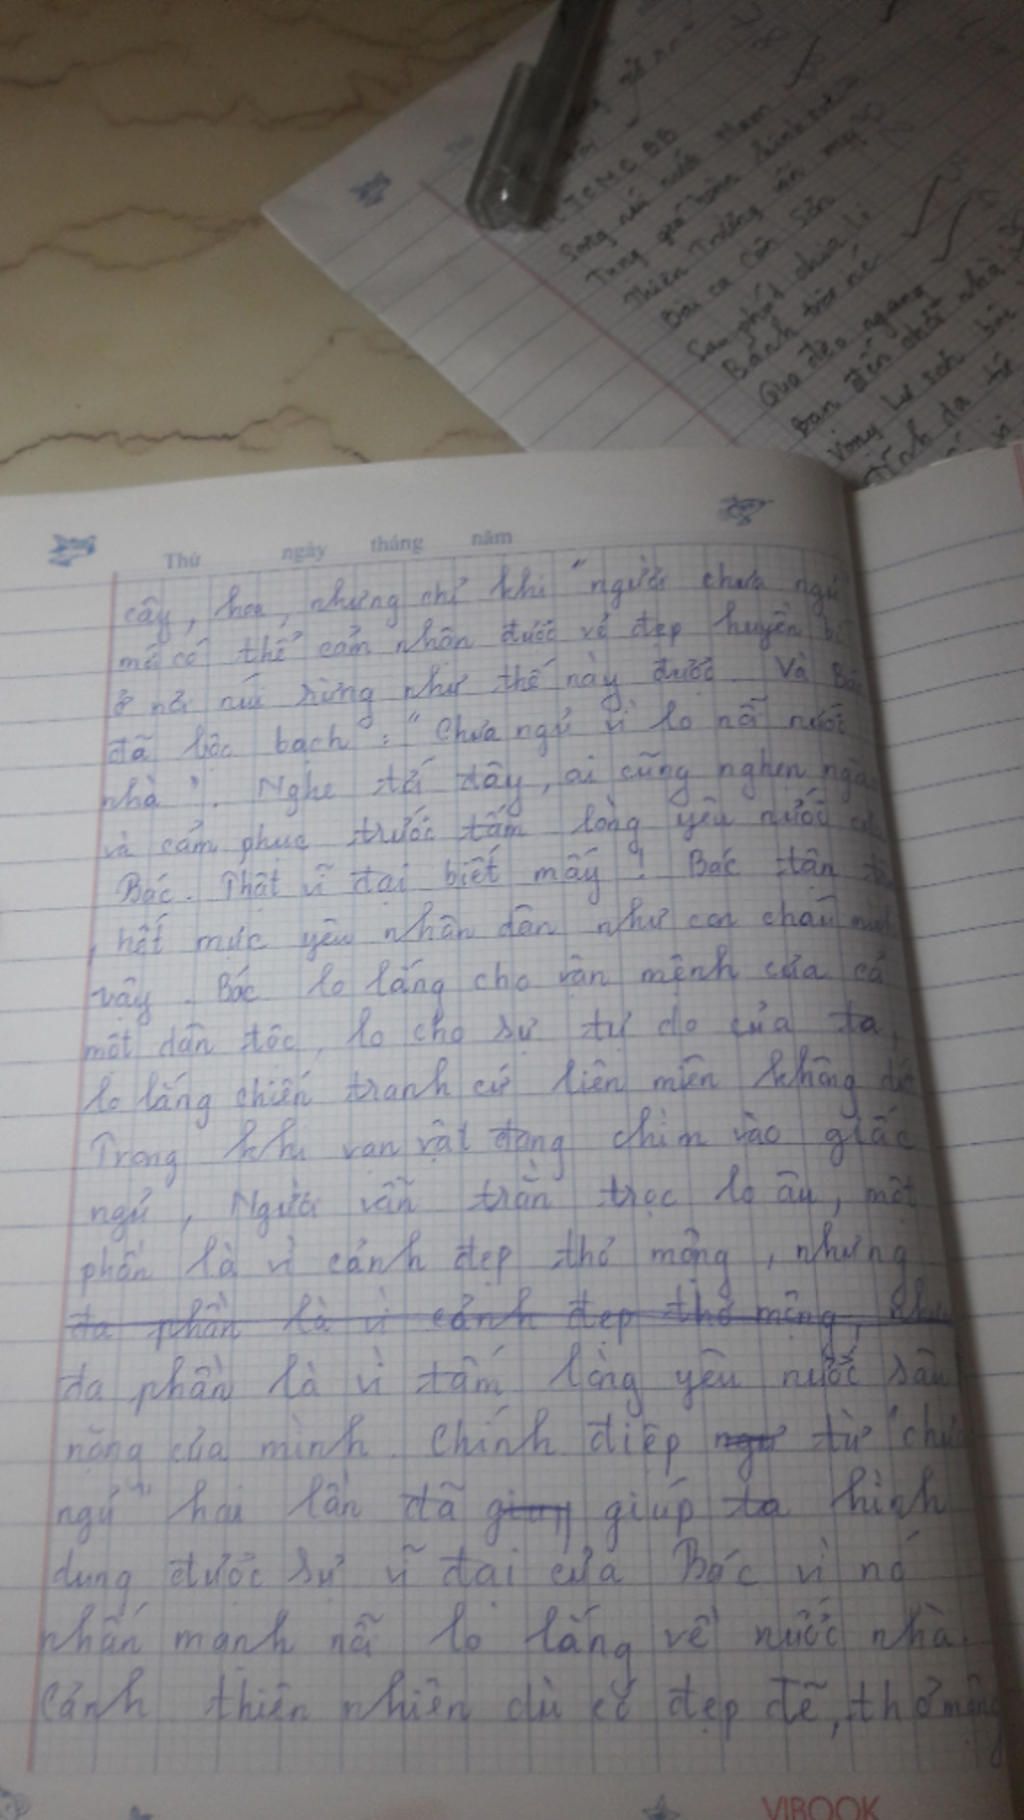 TCNCBB
Sông núi nước Nam
Tụng giá hoàn kinh
Thiên Trường vãn
Bài ca Côn Sơn
Sau phút chia li
Bánh trôi nước
Qua đèo ngang
Bạn đến chơi nhà
Vọng Lư sơn bộc
Thứ ngày tháng năm
cây, hoa, nhưng chỉ khi "người chưa ngủ"
mới có thể cảm nhận được vẻ đẹp huyền bí
ở nơi núi rừng như thế này được. Và Bác
đã bộc bạch: "Chưa ngủ vì lo nỗi nước
nhà". Nghe tới đây, ai cũng nghẹn ngào
và cảm phục trước tấm lòng yêu nước của
Bác. Thật vĩ đại biết mấy! Bác tận
, hết mực yêu nhân dân như con cháu mình
vậy. Bác lo lắng cho vận mệnh của cả
một dân tộc, lo cho sự tự do của ta,
lo lắng chiến tranh cứ liên miên không
Trong khi vạn vật đang chìm vào giấc
ngủ, Người vẫn trằn trọc lo âu, một
phần là vì cảnh đẹp thơ mộng, nhưng
đa phần là vì cảnh đẹp thơ mộng, như
đa phần là vì tấm lòng yêu nước sâu
nặng của mình. Chính điệp ngữ từ "chưa
ngủ" hai lần đã giúp ta hình
dung được sự vĩ đại của Bác vì nó
nhấn mạnh nỗi lo lắng về nước nhà.
Cảnh thiên nhiên dù có đẹp đẽ, thơ mộng
VIBOOK